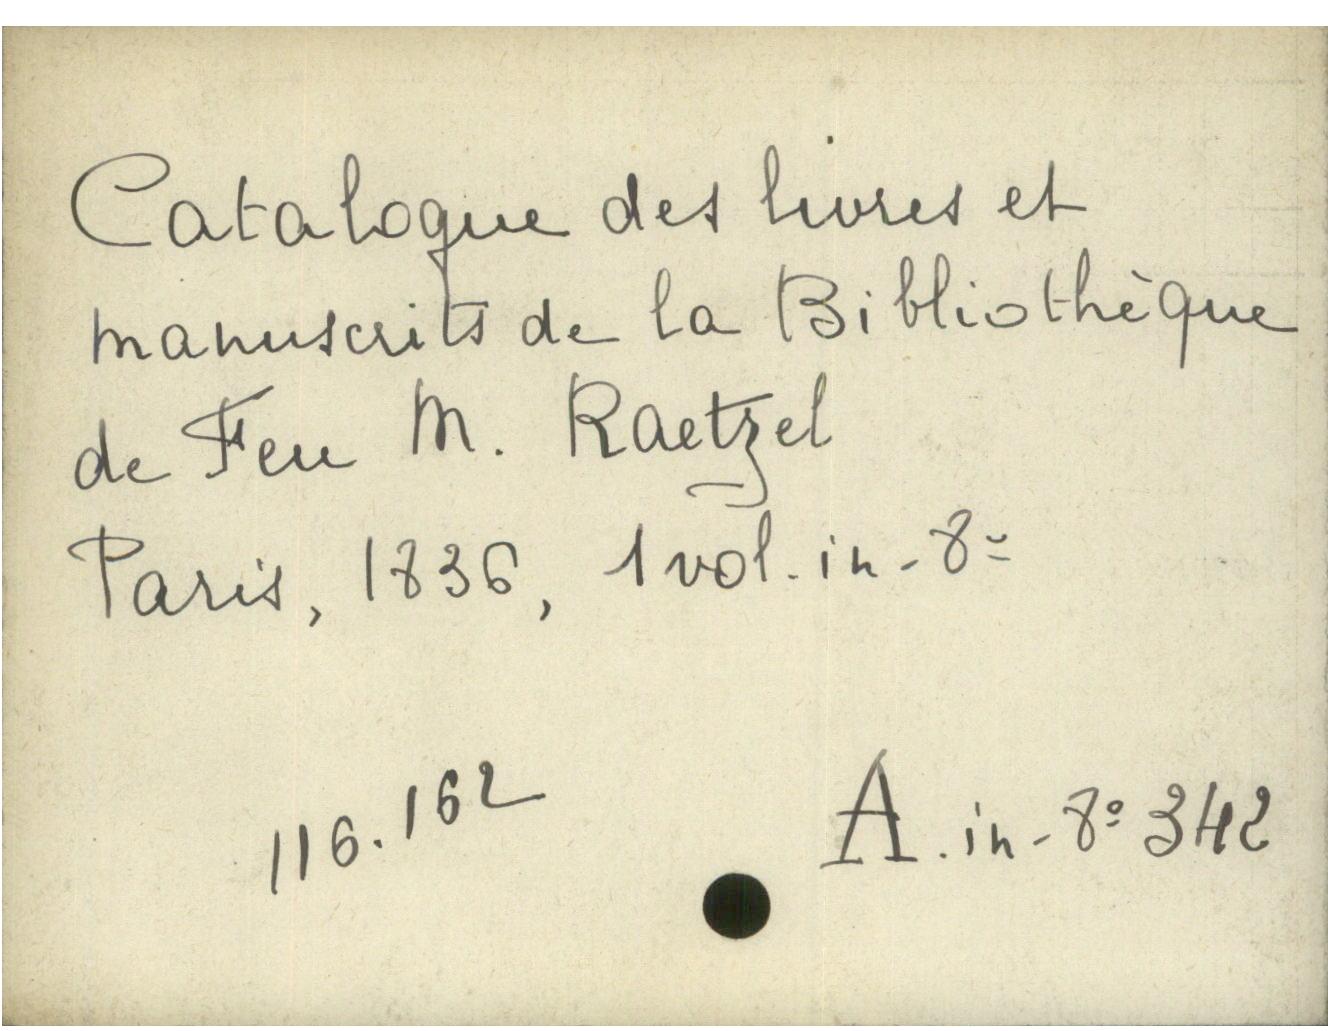 Catalogue des livres et
manuscrits de la Bibliothèque
de Feu M. Raetzel
Paris, 1836, 1 vol. in-8º
116.162
A. in-8º 342